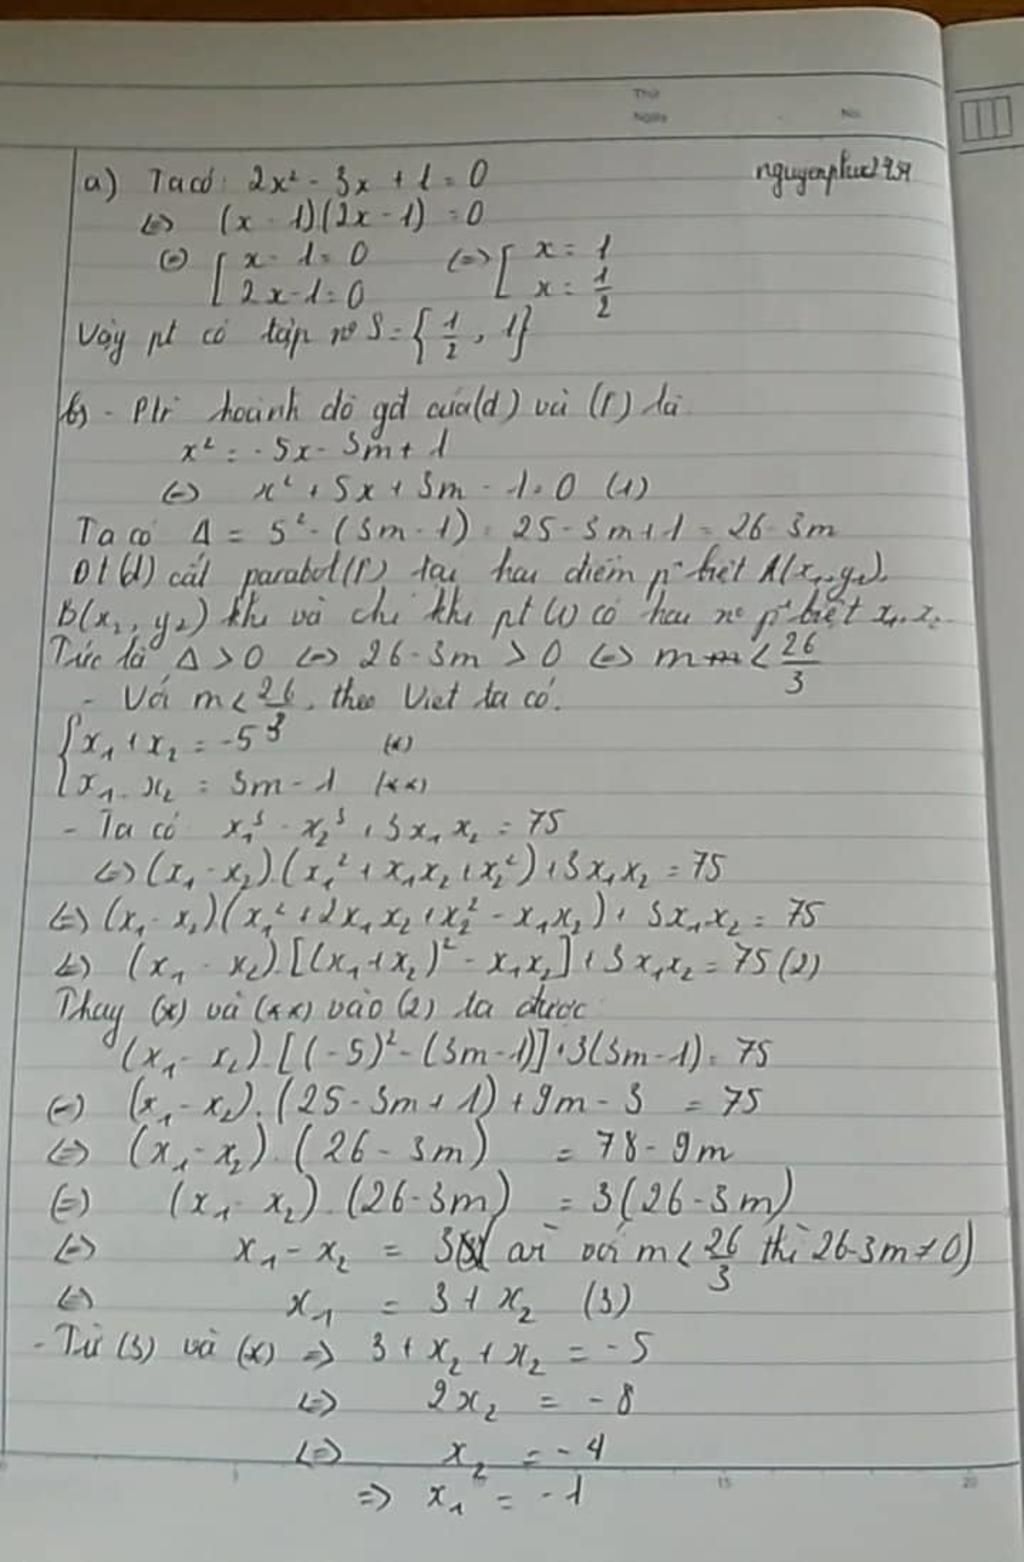 Thứ
Ngày No.
nguyenphuc1959
a) Ta có: 2x² - 3x + 1 = 0
<=> (x - 1)(2x - 1) = 0
<=> [ x - 1 = 0 <=> [ x = 1
2x - 1 = 0 x = 1/2
Vậy pt có tập no S = {1/2, 1}
b) - Ptr hoành độ gđ của (d) và (P) là
x² = -5x - 3m + 1
<=> x² + 5x + 3m - 1 = 0 (1)
Ta có Δ = 5² - (3m - 1) = 25 - 3m + 1 = 26 - 3m
Đt (d) cắt parabol (P) tại hai điểm p biệt A(x₁, y₁),
B(x₂, y₂) khi và chỉ khi pt (1) có hai no p biệt x₁, x₂
Tức là Δ > 0 <=> 26 - 3m > 0 <=> m < 26/3
- Với m < 26/3, theo Viet ta có:
{ x₁ + x₂ = -5 (*)
x₁. x₂ = 3m - 1 (**)
- Ta có x₁³ - x₂³ + 3x₁x₂ = 75
<=> (x₁ - x₂).(x₁² + x₁x₂ + x₂²) + 3x₁x₂ = 75
<=> (x₁ - x₂)(x₁² + 2x₁x₂ + x₂² - x₁x₂) + 3x₁x₂ = 75
<=> (x₁ - x₂).[(x₁ + x₂)² - x₁x₂] + 3x₁x₂ = 75 (2)
Thay (*) và (**) vào (2) ta được
(x₁ - x₂).[(-5)² - (3m - 1)] + 3(3m - 1) = 75
<=> (x₁ - x₂).(25 - 3m + 1) + 9m - 3 = 75
<=> (x₁ - x₂).(26 - 3m) = 78 - 9m
<=> (x₁ - x₂).(26 - 3m) = 3(26 - 3m)
<=> x₁ - x₂ = 3 (với m < 26/3 thì 26 - 3m ≠ 0)
<=> x₁ = 3 + x₂ (3)
- Từ (3) và (*) => 3 + x₂ + x₂ = -5
<=> 2x₂ = -8
<=> x₂ = -4
=> x₁ = -1
15 20